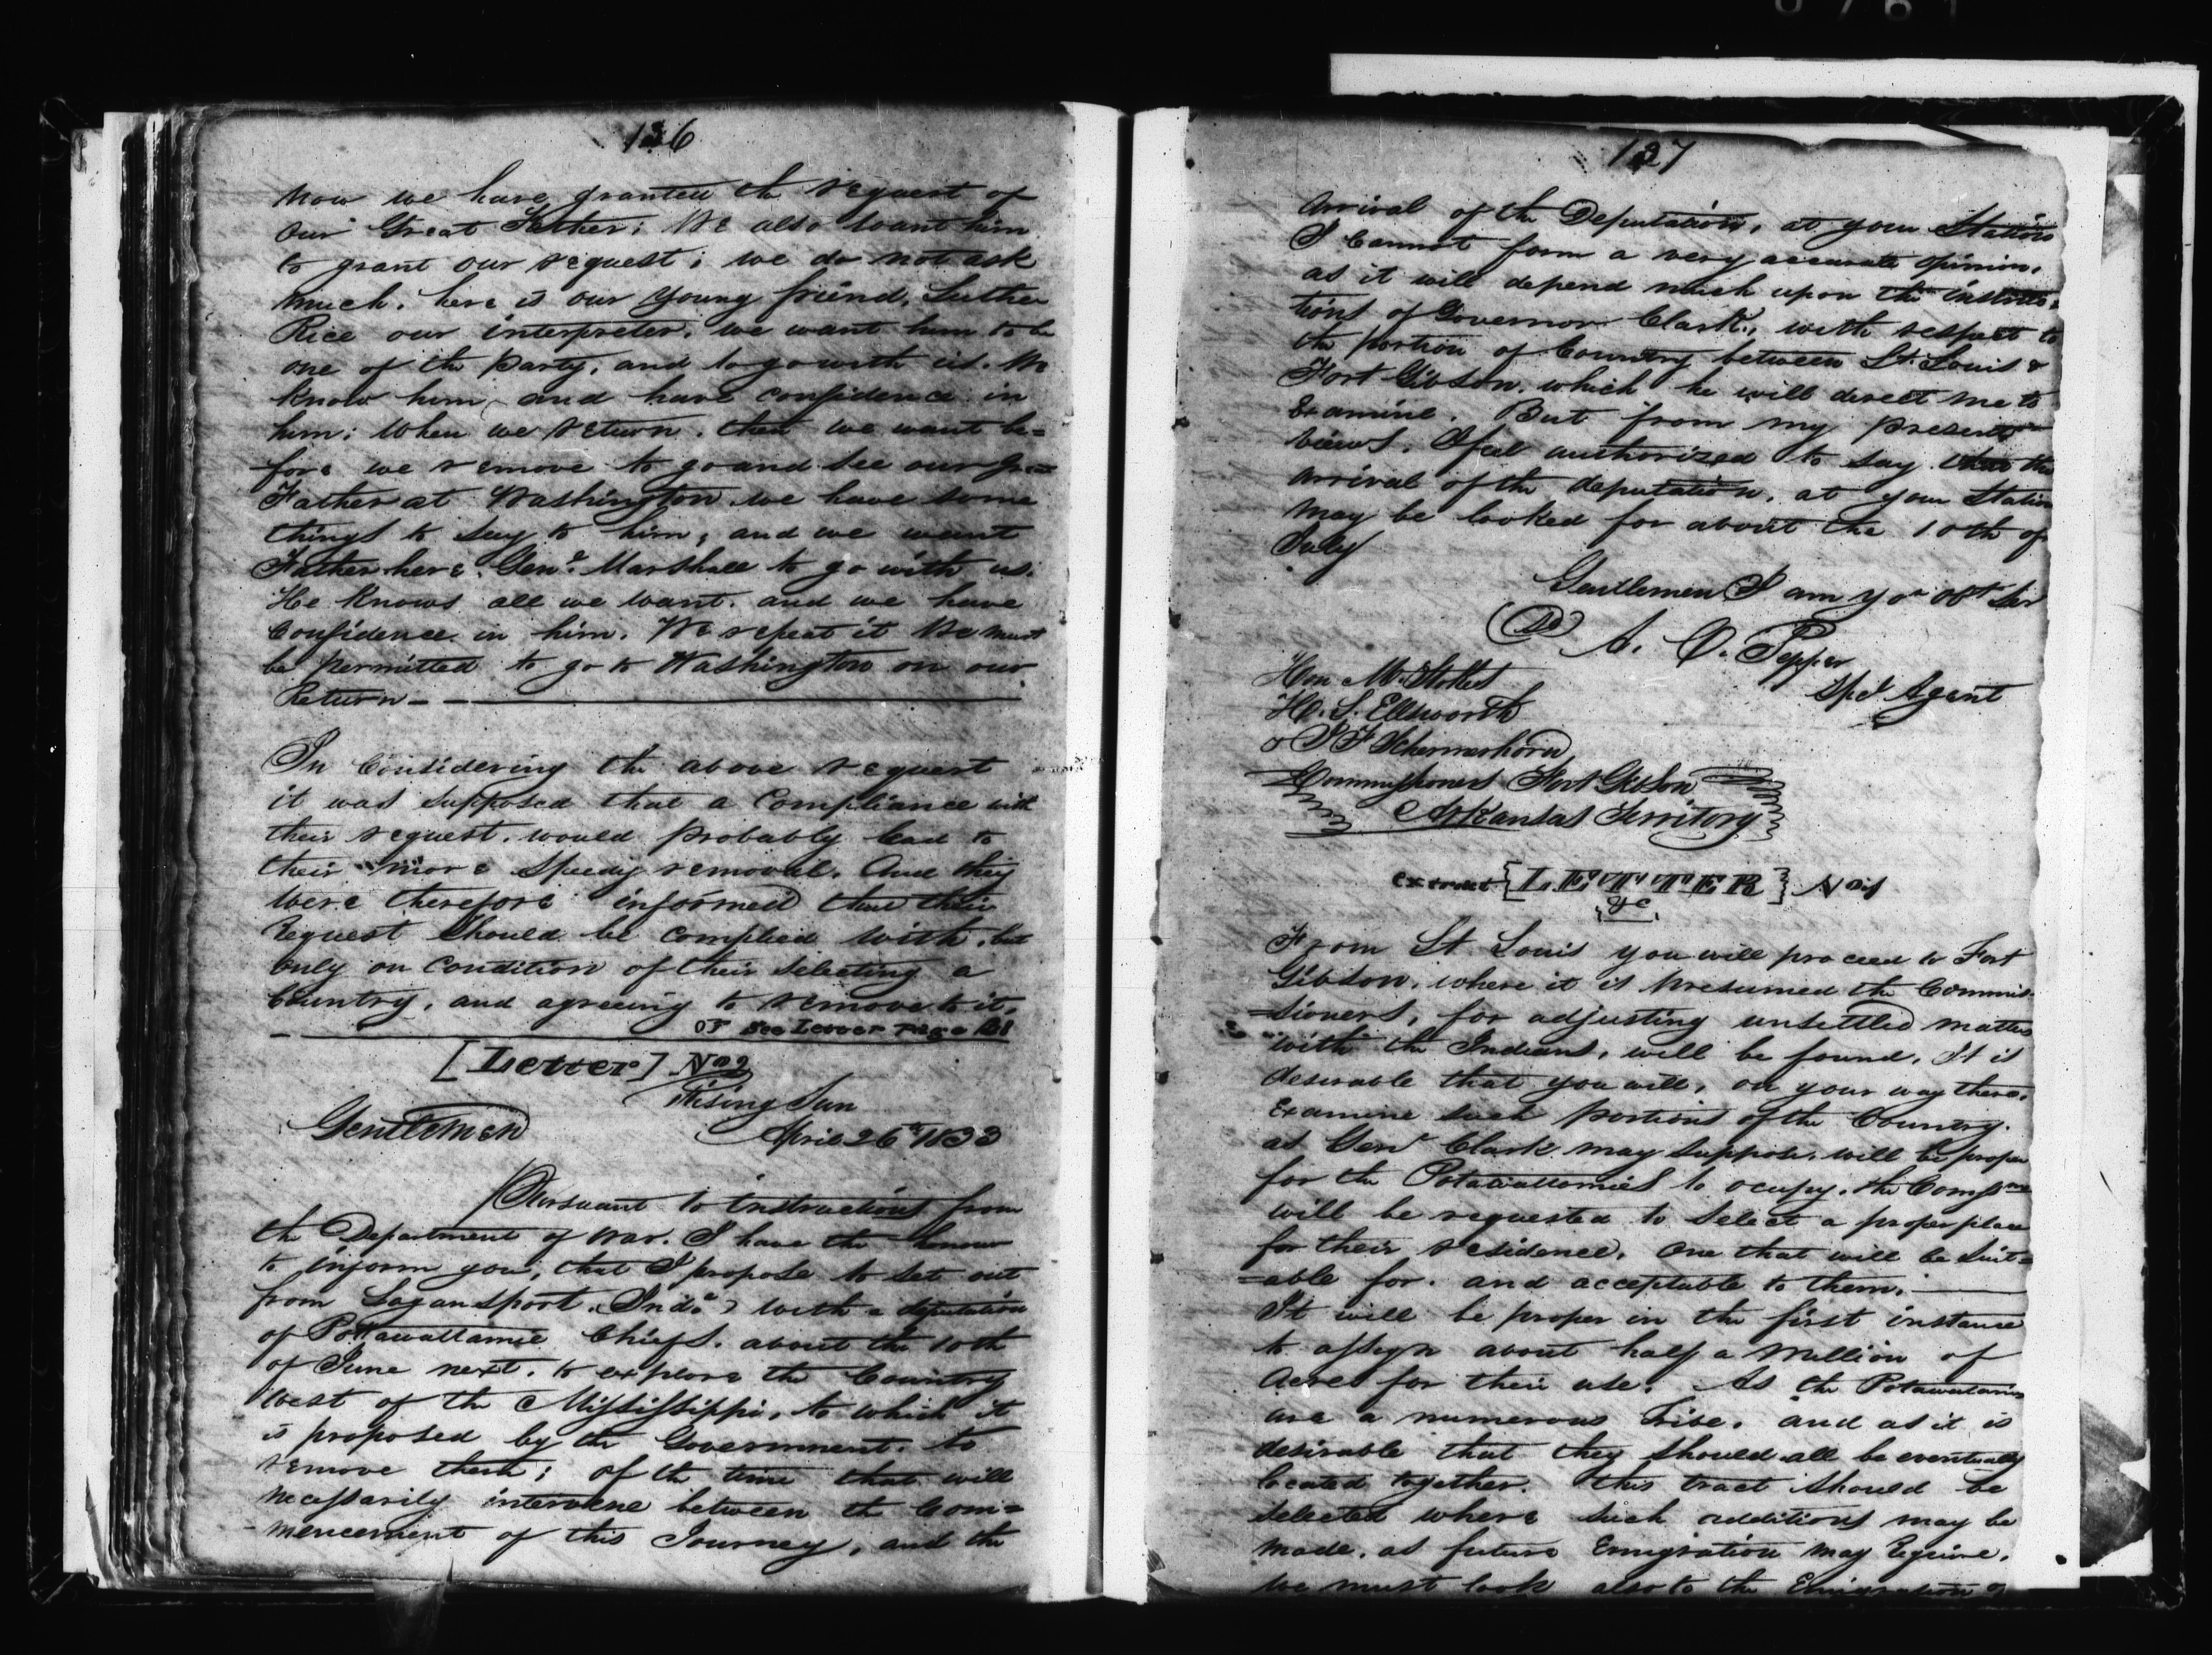 136
Now we have granted the request of
our Great Father; We also want him
to grant our request; we do not ask
much. here is our young friend, Luther
Rice our interpreter. we want him to be
one of the party, and to go with us. We
know him and have confidence in
him; When we return. then we want be=
fore we remove to go and see our Gr=
Father at Washington we have some
things to say to him; and we want
Father here Genl. Marshall to go with us.
He knows all we want. and we have
Confidence in him. We repeat it We must
be permitted to go to Washington on our
Return - -
In Considering the above request
it was supposed that a Compliance with
their request. would probably lead to
their more speedy removal. And they
were therefore informed that their
request should be complied with. but
only on condition of their selecting a
Country, and agreeing to remove to it.
See Letter Page
[Letter] No 2
Rising Sun
Gentlemen April 26th 1833
Pursuant to instructions from
the Department of War. I have the honor
to inform you, that I propose to set out
from Logansport. (Inda) with a deputation
of Pottawattamie Chiefs. about the 10th
of June next. to explore the Country
west of the Mississippi, to which it
is proposed by the Government. to
remove them; of the time that will
necessarily intervene between the Com=
mencement of this Journey, and the
137
arrival of the Deputation, at your Station
I cannot form a very accurate opinion.
as it will depend much upon the instruc=
tions of Governor Clark, with respect to
the portion of Country between St. Louis &
Fort Gibson. which he will direct me to
Examine. But from my present
views. I feel authorized to say that the
arrival of the deputation, at your Station
may be looked for about the 10th of
July
Gentlemen I am yor Obt Ser
(Sd) A. C. Pepper
Spcl Agent
Hon M. Stokes
H. L. Ellsworth
& J F Schermerhorn
Commissioners Fort Gibson
Arkansas Territory
extract [LETTER]
&c
From St Louis you will proceed to Fort
Gibson. where it is presumed the Commis=
=sioners, for adjusting unsettled matters
with the Indians, will be found. It is
desirable that you will, on your way there.
Examine such portions of the Country.
as Genl Clark may suppose. will be proper
for the Potawattomies to ocupy. the Comsrs
will be requested to select a proper place
for their residence. One that will be suit=
=able for. and acceptable to them.
It will be proper in the first instance
to assign about half a Million of
Acres for their use. As the Potawatamies
are a numerous Tribe. and as it is
desirable that they should all be eventually
located together. this tract should be
selected where such additions may be
made. as future Emigration may require.
we must look also to the Emigration of